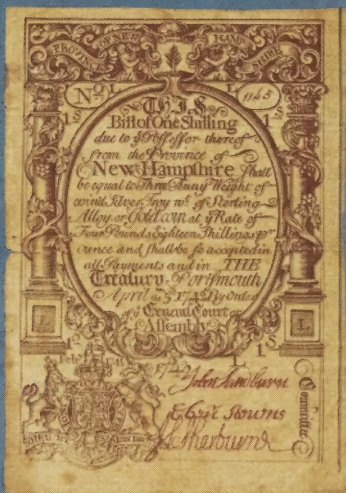 PROVINCE OF NEW HAMP SHIRE
No 1945
THIS
Bill of One Shilling
due to ye Possessor thereof
from the Province of
New Hampshire Shall
be equal to Three Penny Weight of
coined Silver, Troy wt of Sterling
Alloy or Gold coin at ye Rate of
Four Pounds Eighteen Shillings pr
ounce and shall be so accepted in
all Payments and in THE
Treasury. Portsmouth
April By Order
of ye General Court or
Assembly
1s 1s
1s 1s
L L
1742
Committee